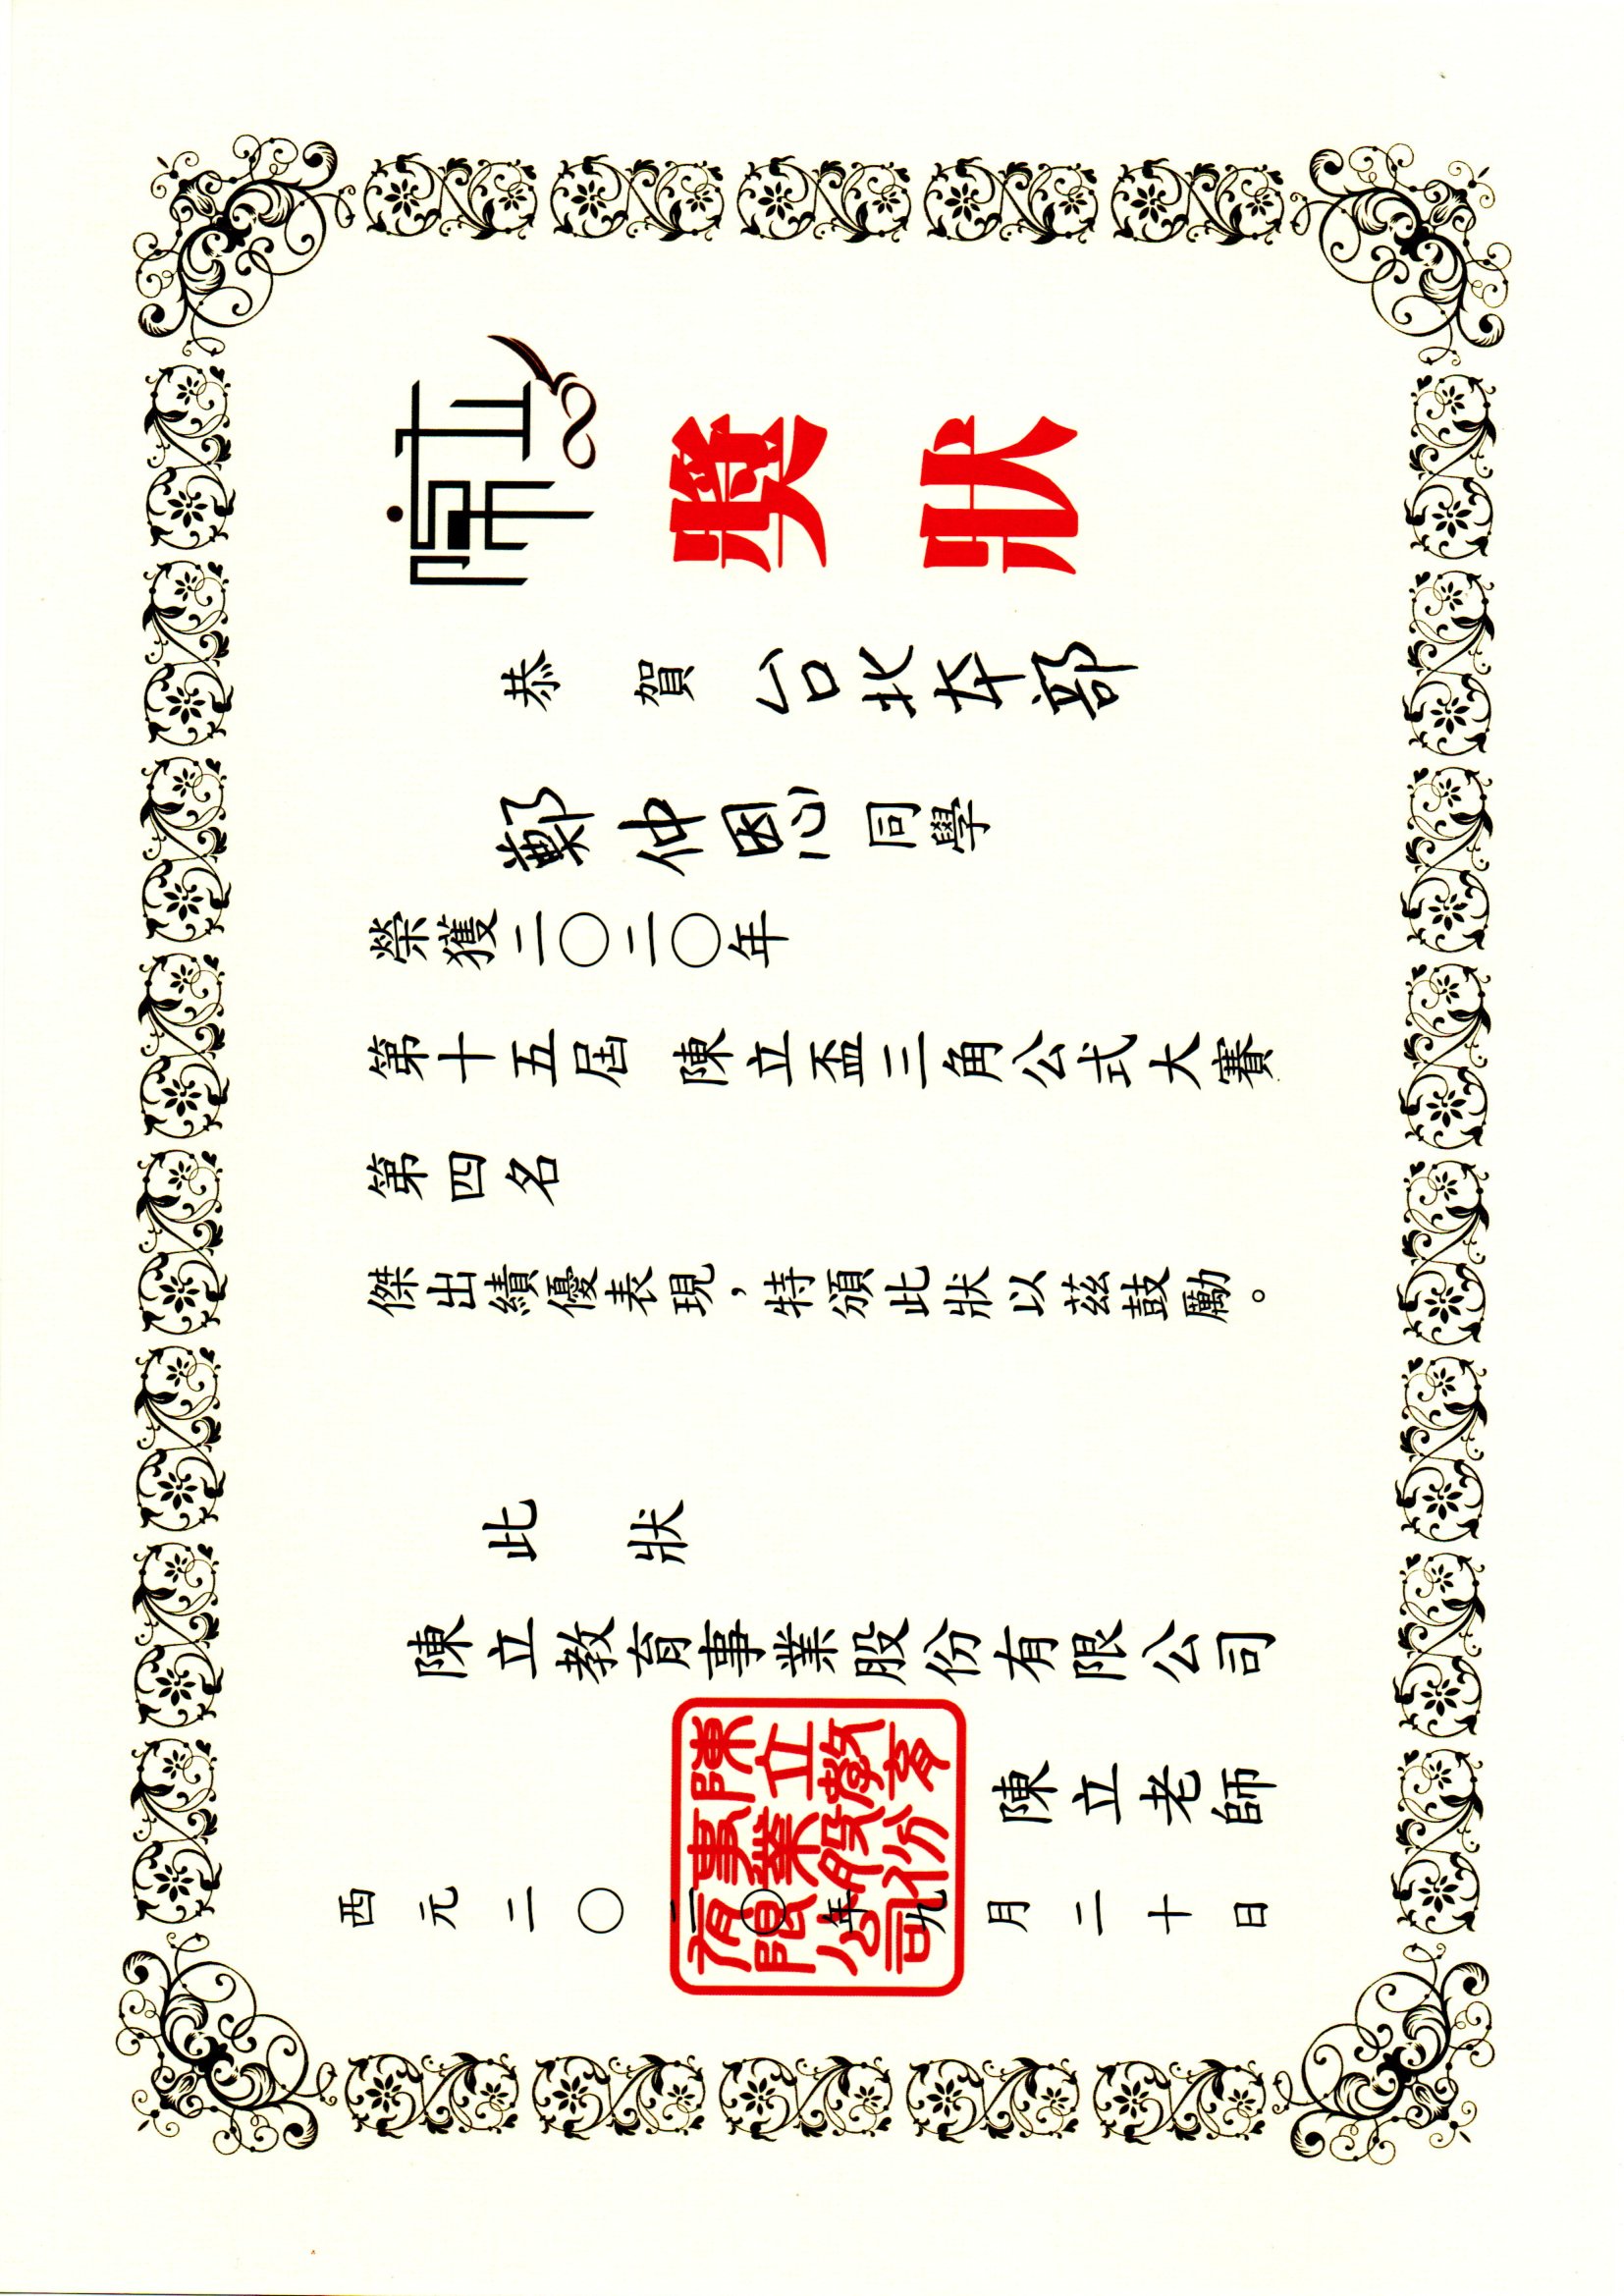 陳立
獎狀
恭賀 台北本部
鄭仲恩 同學
榮獲二〇二〇年
第十五屆 陳立盃三角公式大賽
第四名
傑出績優表現，特頒此狀以茲鼓勵。
此狀
陳立教育事業股份有限公司
陳立老師
陳立教育事業股份有限公司
西元二〇二〇年九月二十日